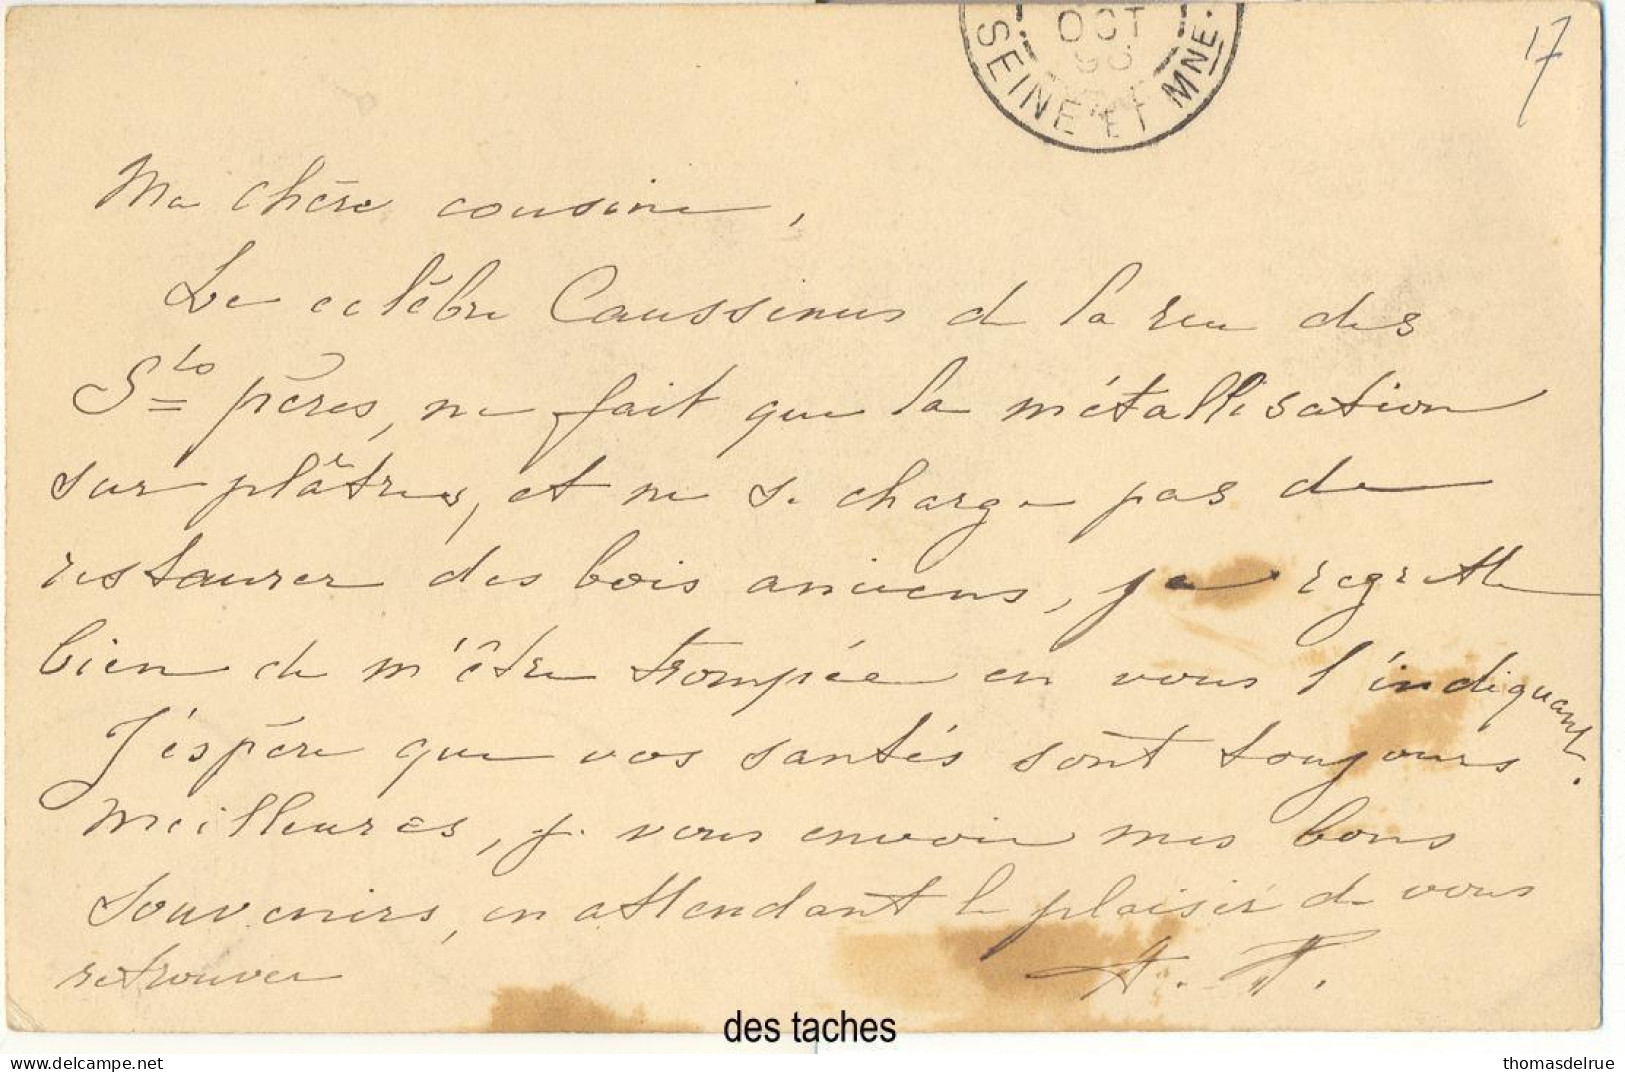 OCT
SEINE ET MNE.
17
Ma chère cousine,
Le célèbre Caussinus de la rue des
Sts pères, ne fait que la métallisation
sur plâtres, et ne se charge pas de
restaurer des bois anciens, je regrette
bien de m'être trompée en vous l'indiquant.
J'éspère que vos santés sont toujours
meilleures, je vous envoie mes bons
souvenirs, en attendant le plaisir de vous
retrouver
des taches
thomasdelrue
delcampe.net